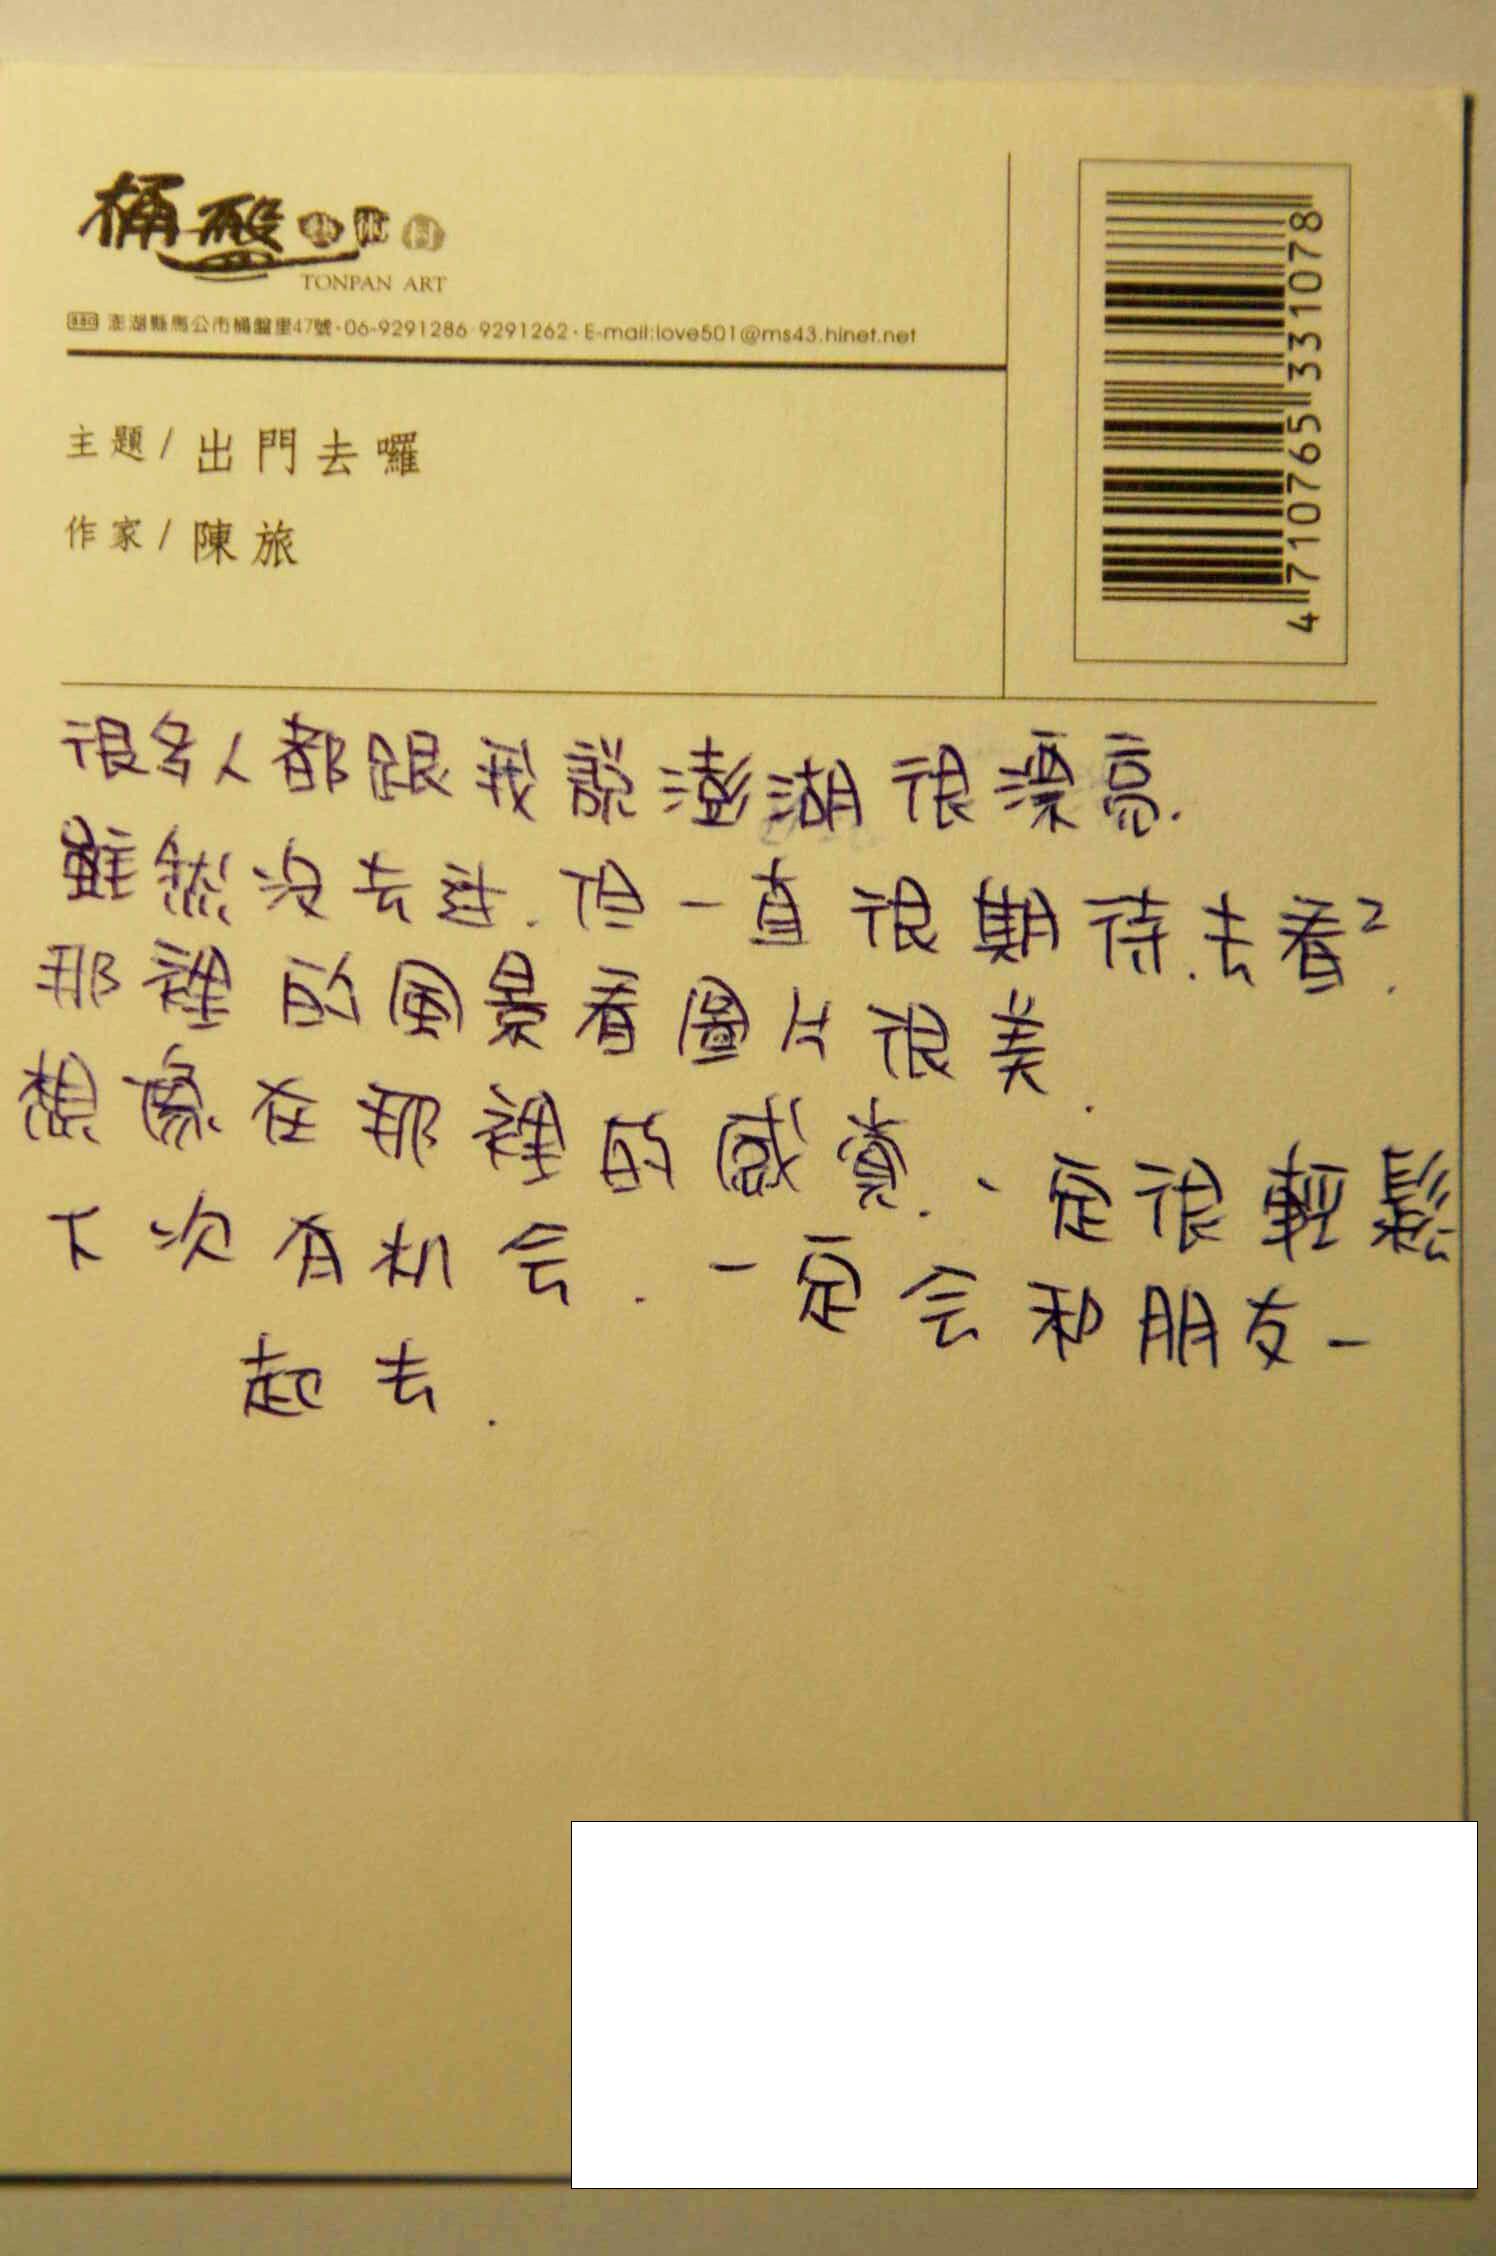 桶盤藝術村
TONPAN ART
880 澎湖縣馬公市桶盤里47號·06-9291286 9291262·E-mail:love501@ms43.hinet.net
主題/ 出門去囉
作家/ 陳旅
4 710765 331078
很多人都跟我說澎湖很漂亮.
雖然沒去过.但一直很期待.去看2.
那裡的風景看圖片很美.
想像在那裡的感覚.一定很輕鬆
下次有机会.一定会和朋友一
起去.